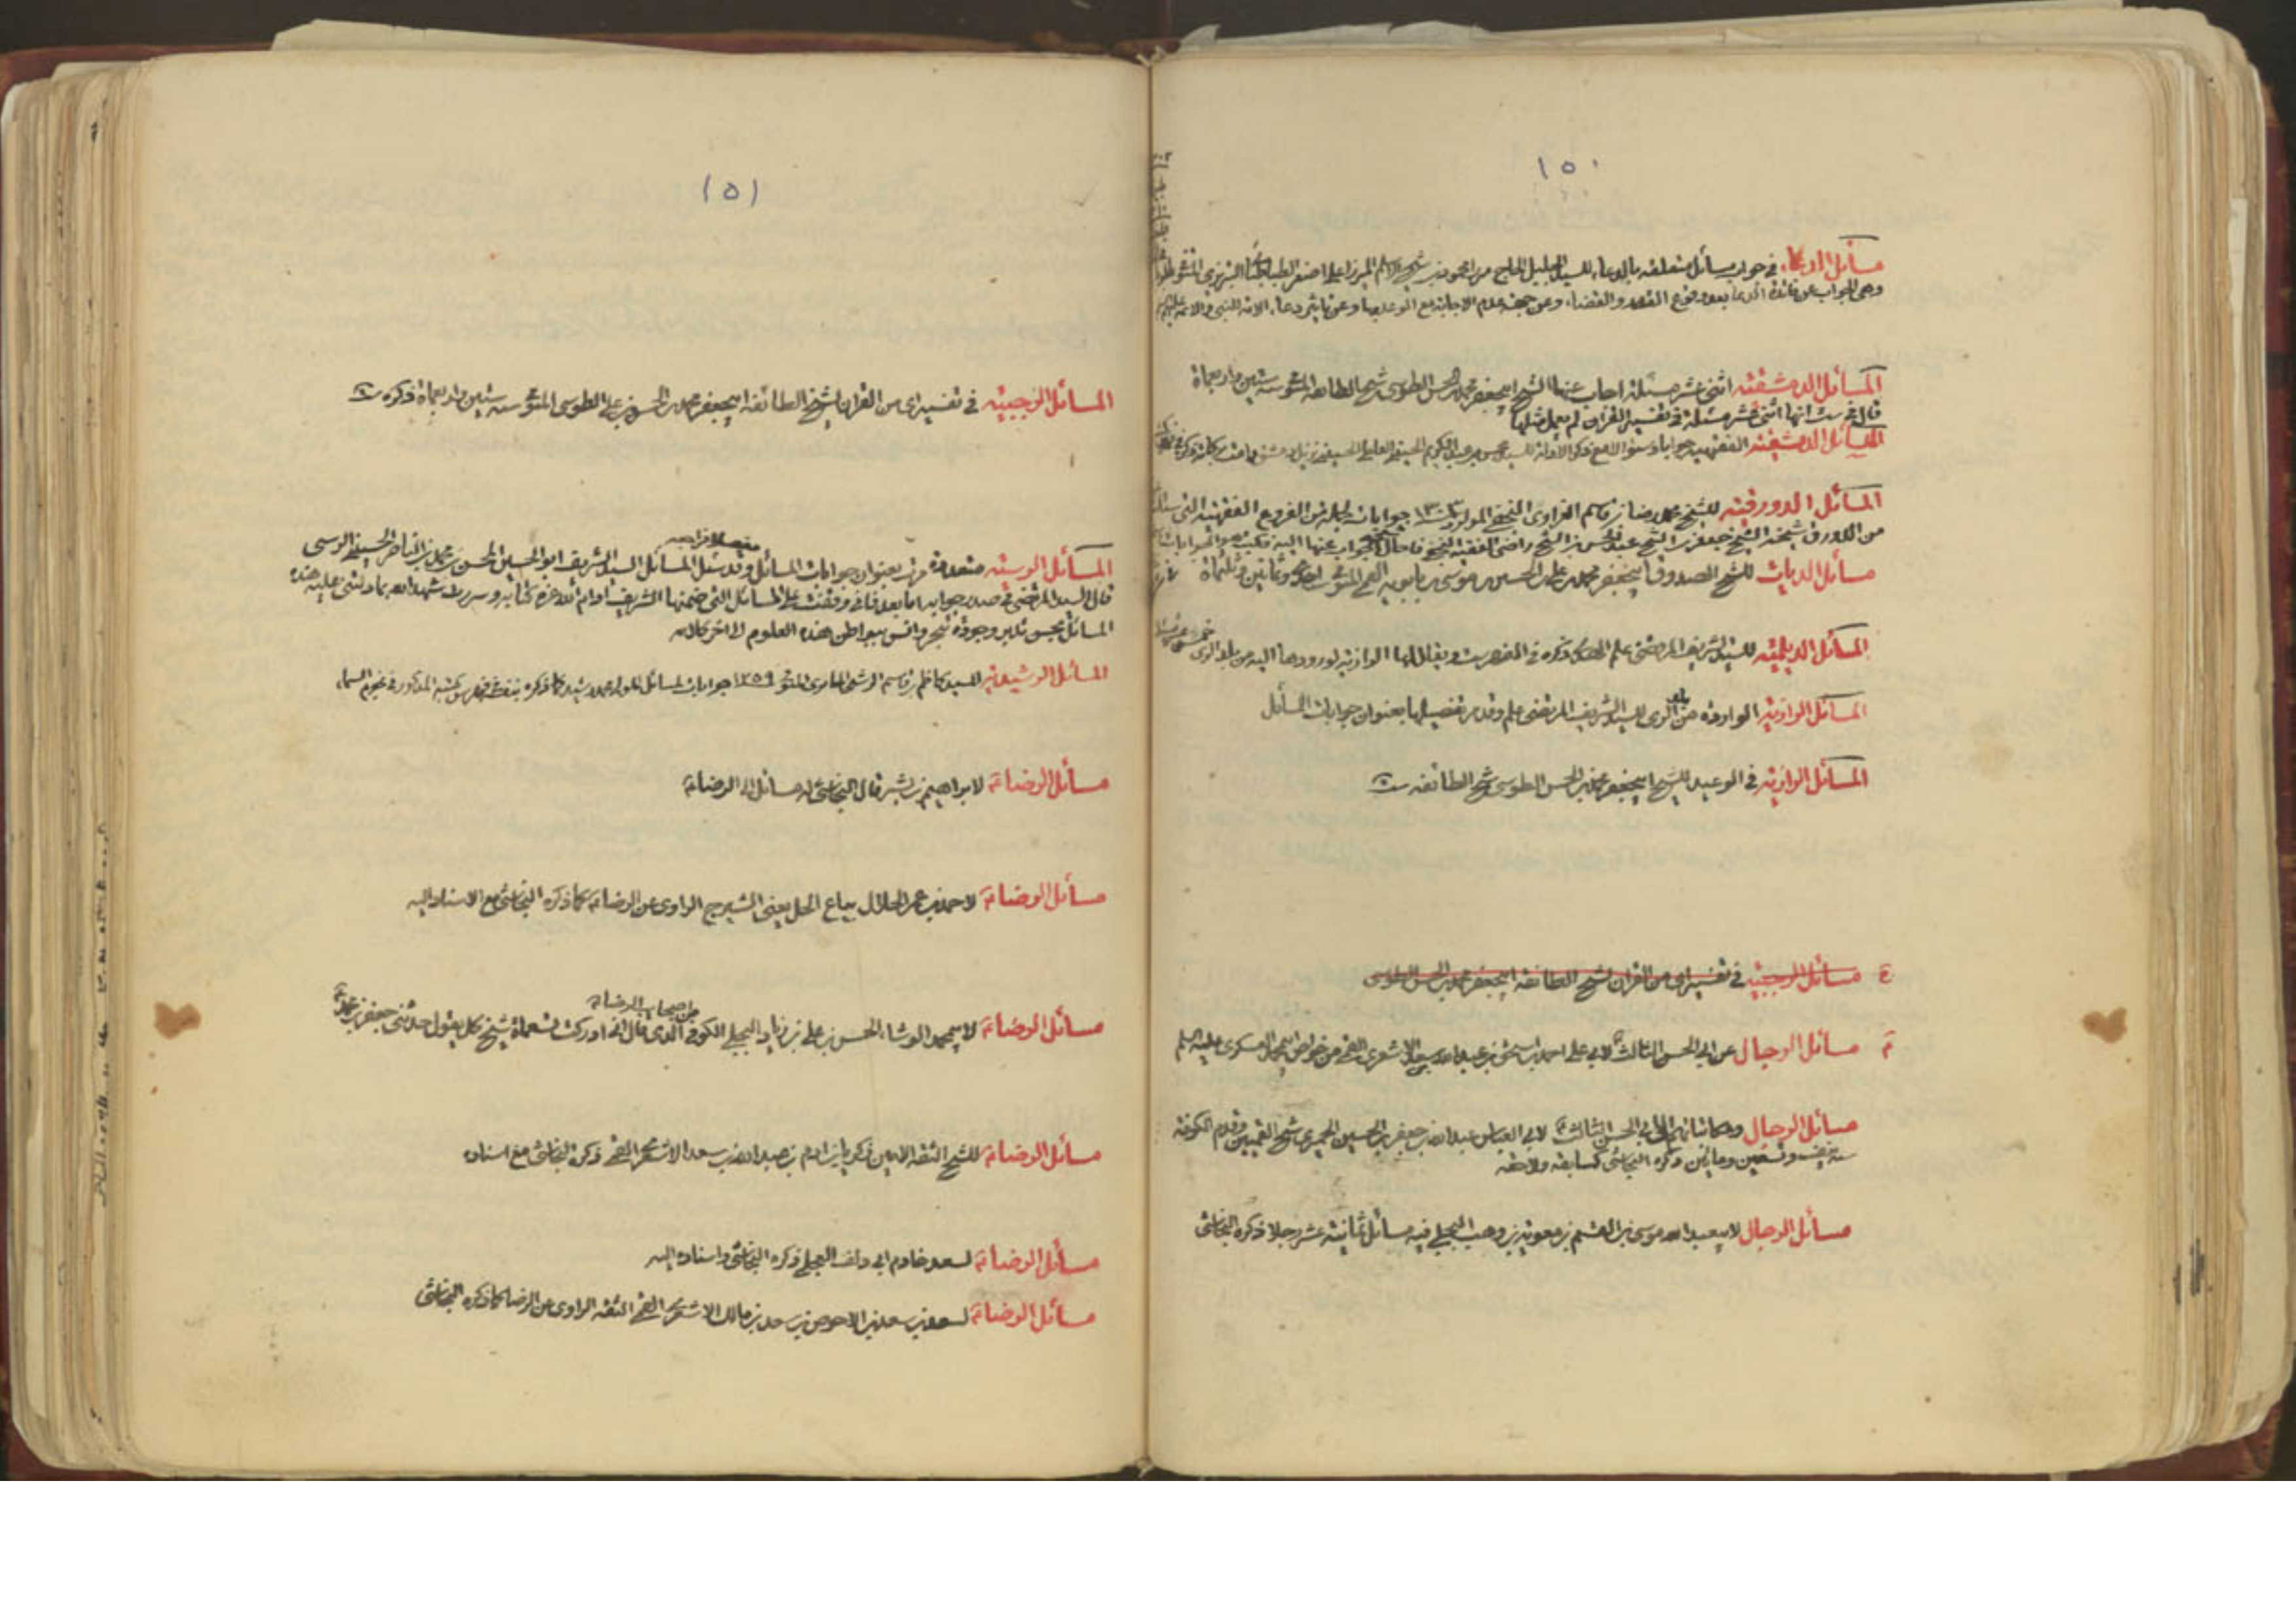 ١٥٠
مسائل الدعاء في جواب مسائل متعلقة بالدعاء للسيد الجليل الحاج ميرزا محمود بن شيخ الاسلام الميرزا علي اصغر الطباطبائي التبريزي المتوفى
وهي الجواب عن فائدة الدعاء بعد وقوع القدر والقضاء وعن جهة عدم الاجابة مع الوعد بها وعن تاثير دعاء الامة للنبي والائمة عليهم
المسائل الدمشقية اثنى عشر مسئلة اجاب عنها الشيخ ابيجعفر محمد بن الحسن الطوسي شيخ الطائفة المتوفى سنة ستين واربعمأة
قال في ست انها اثنى عشر مسئلة في تفسير القرآن لم يعمل مثلها
المسائل الدمشقية الفقهية جوابا وسؤالا مع ذكر الادلة للسيد محسن بن عبد الكريم الحسيني العاملي نزيل دمشق
المسائل الدورقية للشيخ محمد رضا بن قاسم الغراوي النجفي المولود ١٣٠٣ جوابات جملة من الفروع الفقهية التي سئل
من الدورق شيخه الشيخ جعفر بن الشيخ عبد الحسن بن الشيخ راضي الفقيه النجفي فاحال الجواب عنها اليه فكتب هو الجوابات
مسائل الديات للشيخ الصدوق ابيجعفر محمد بن علي بن الحسين بن موسى بن بابويه القمي المتوفى احدى وثمانين وثلثمأة
المسائل الديلمية للسيد الشريف المرتضى علم الهدى ذكره في الفهرست ويقال لها الرازية لورودها اليه من بلد الري
المسائل الرازية الواردة من بلد الري للسيد الشريف المرتضى علم وقد مر تفصيلها بعنوان جوابات المسائل
المسائل الرازية في الوعيد للشيخ ابيجعفر محمد بن الحسن الطوسي شيخ الطائفة ست
مسائل الرجبية في تفسير اى من القرآن لشيخ الطائفة ابيجعفر محمد بن الحسن الطوسي
مسائل الرجال عن ابي الحسن الثالث لابي علي احمد بن اسحق بن عبد الله بن سعد الاشعري القمي من خواص ابيمحمد العسكري عليه السلم
مسائل الرجال ومكاتباتهم الى ابي الحسن الثالث لابي العباس عبد الله بن جعفر بن الحسين الحميري شيخ القميين وقدم الكوفة
سنة نيف وتسعين ومأتين ذكره النجاشي كسابقه ولاحقه
مسائل الرجال لابيعبد الله موسى بن القسم بن معوية بن وهب البجلي فيه مسائل ثمانية عشر رجلا ذكره النجاشي
١٥١
المسائل الرجبية في تفسير اى من القرآن لشيخ الطائفة ابيجعفر محمد بن الحسن بن علي الطوسي المتوفى سنة ستين واربعمأة ذكره ست
المسائل الرسية متعددة مرت بعنوان جوابات المسائل وقد سئل المسائل السيد الشريف ابو الحسين المحسن بن محمد بن الناصر الحسيني الرسي
قال السيد المرتضى في صدر جوابه اما بعد فاني وقفت على المسائل التي ضمنها الشريف ادام الله عزه كتابه وسررت شهد الله بما دلتني عليه هذه
المسائل من حسن تدبر وجودة تبحر وانس ببواطن هذه العلوم الى اخر كلامه
المسائل الرشيدية للسيد كاظم بن قاسم الرشتي الحائري المتوفى ١٢٥٩ جوابات المسائل المولى محمد رشيد كما ذكره بنفسه في فهرس كتبه المذكور في نجوم السماء
مسائل الرضا ع لابراهيم بن بشر قال النجاشي له مسائل الى الرضا ع
مسائل الرضا ع لاحمد بن عمر الحلال بياع الحل يعني الشيرج الراوي عن الرضا ع كما ذكره النجاشي مع الاسناد اليه
من اصحاب الرضا ع
مسائل الرضا ع لابيمحمد الوشاء الحسن بن علي بن زياد البجلي الكوفي الذي قال اني ادركت تسعمأة شيخ كل يقول حدثني جعفر بن محمد ع
مسائل الرضا ع للشيخ الثقة الامين زكريا بن ادم بن عبد الله بن سعد الاشعري القمي ذكره النجاشي مع اسناده
مسائل الرضا ع لسعد خادم ابي دلف العجلي ذكره النجاشي واسناده اليه
مسائل الرضا ع لسعد بن سعد بن الاحوص بن سعد بن مالك الاشعري القمي الثقة الراوي عن الرضا كما ذكره النجاشي